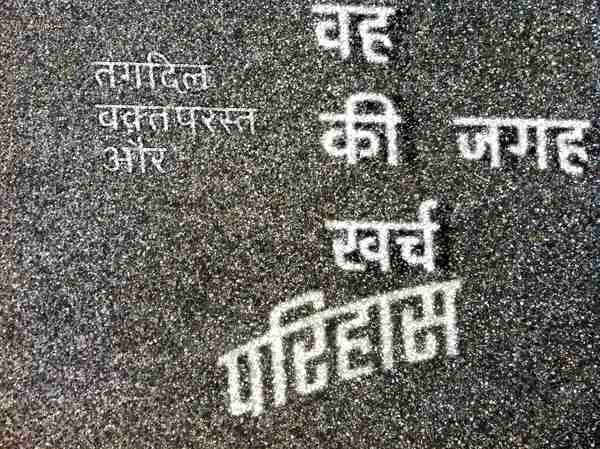 वह
तगदिल
वक़्तपरस्त
और
की जगह
खर्च
परिहास